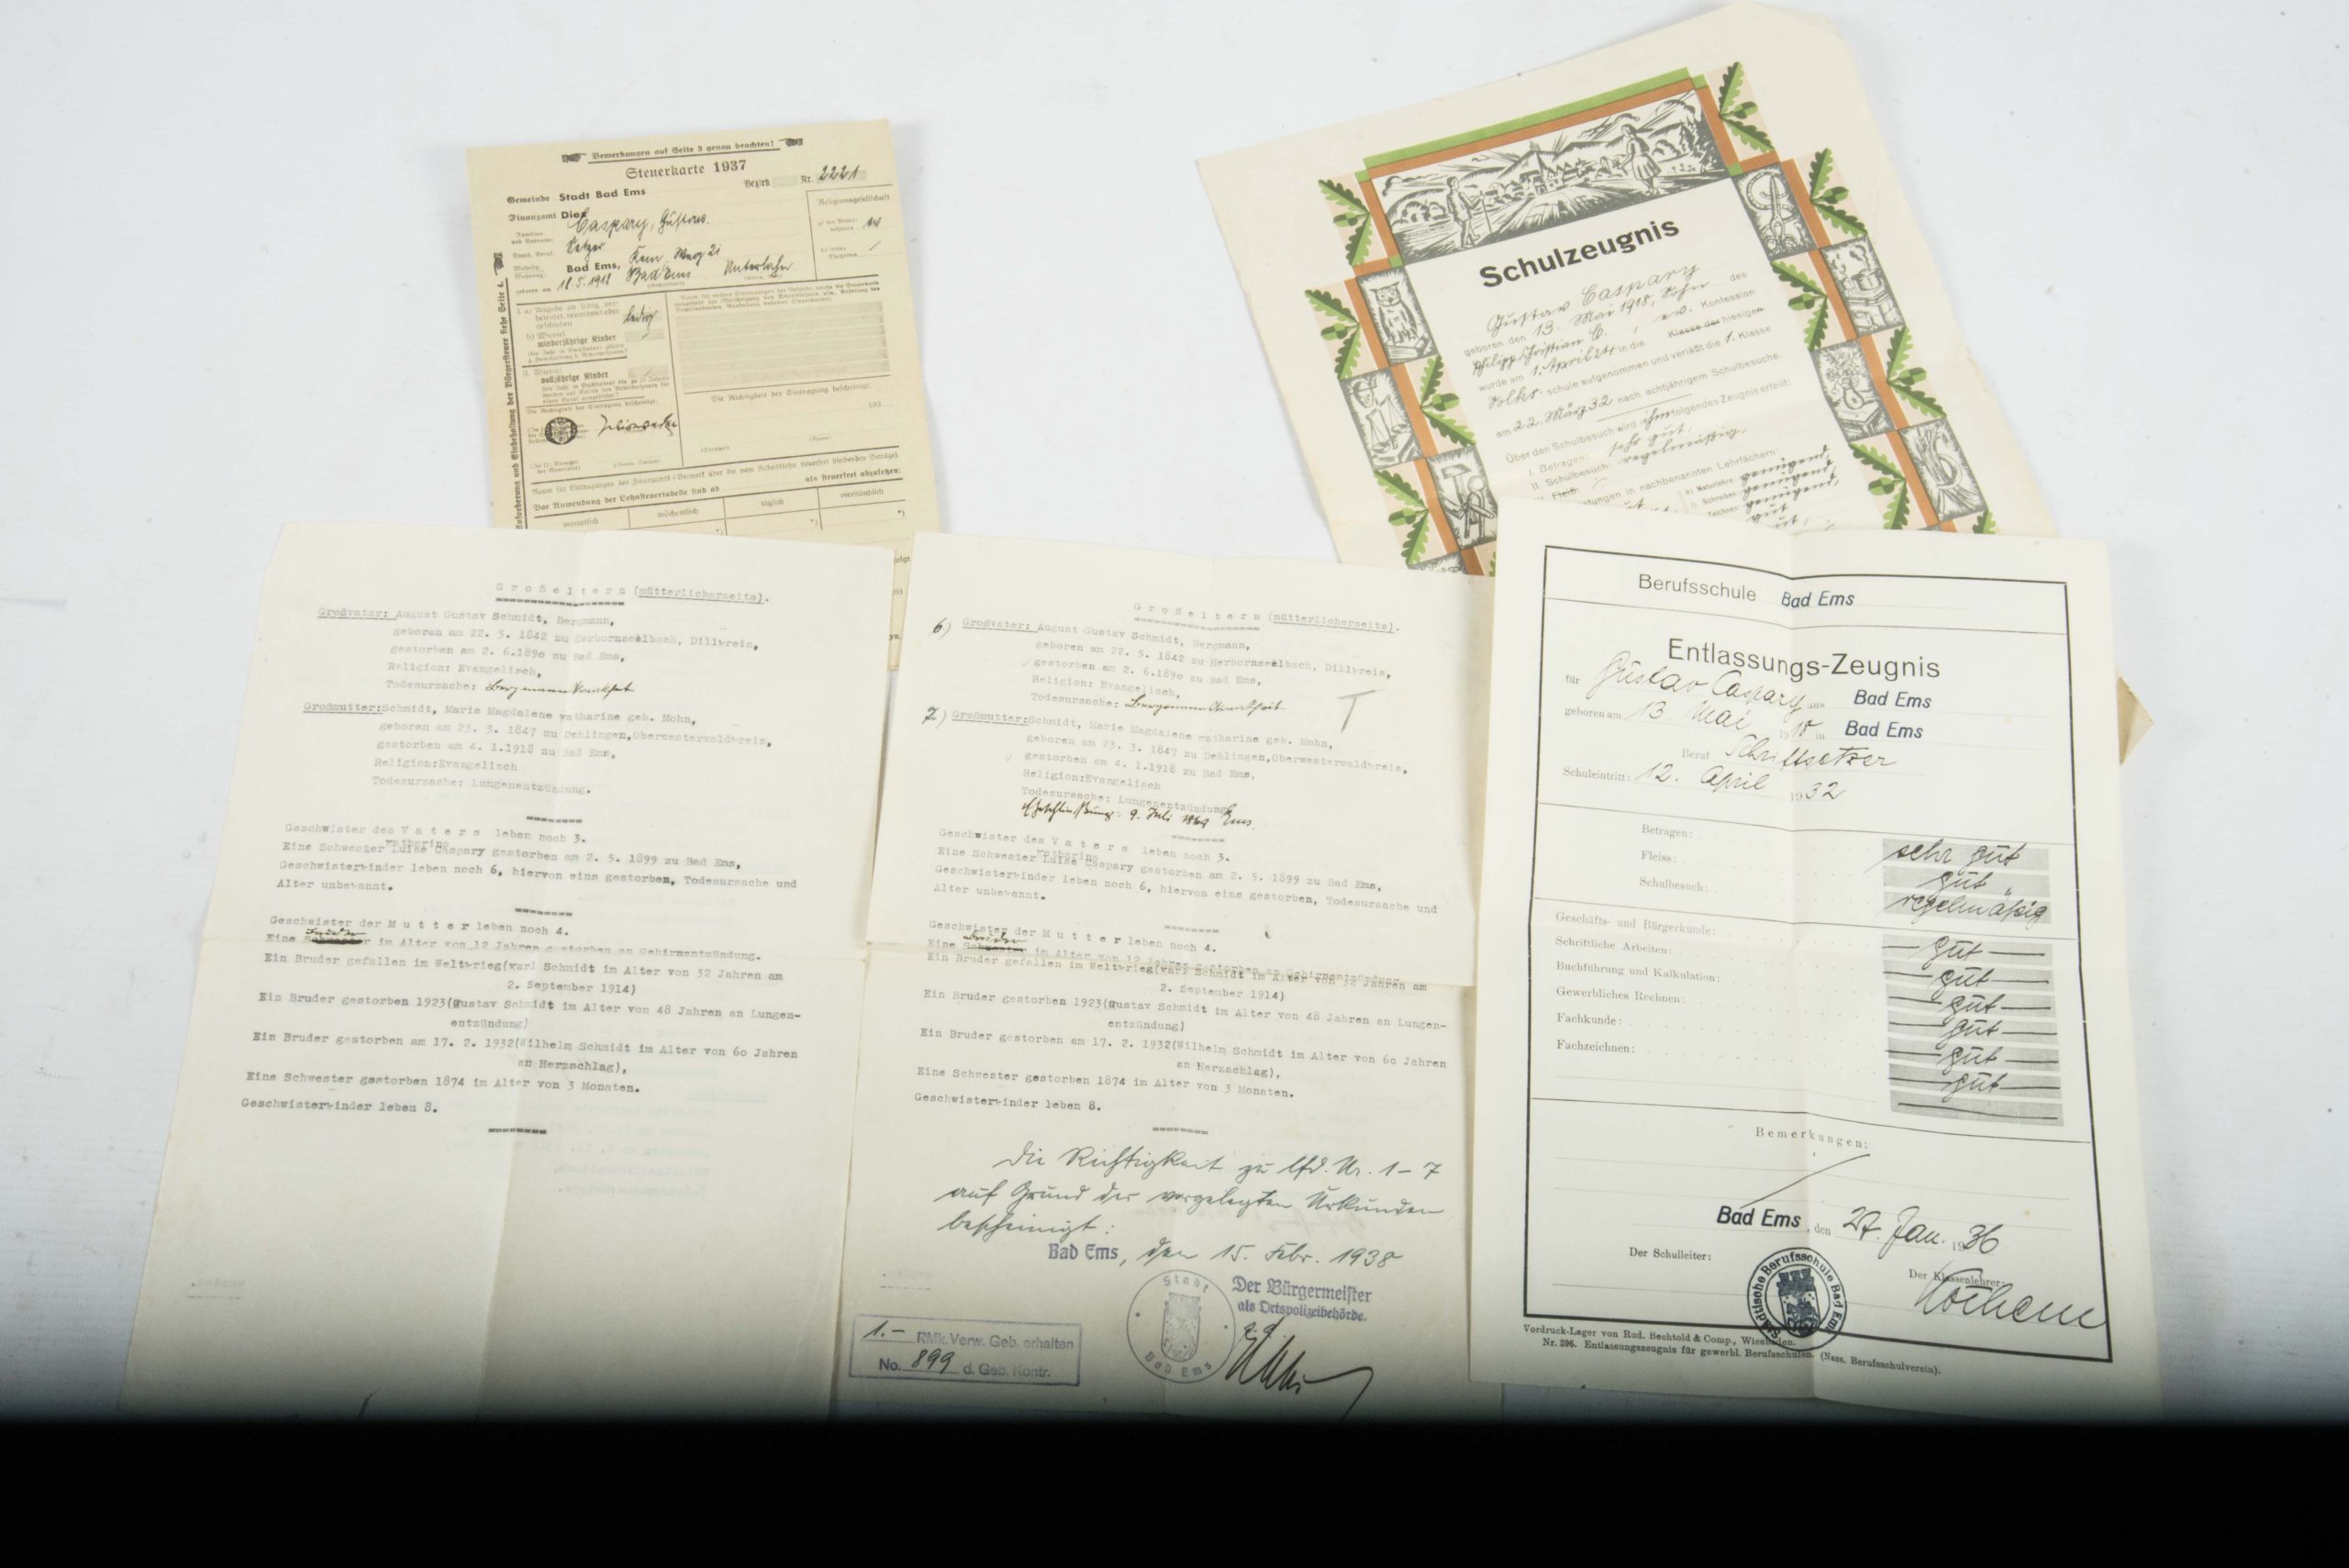 Bemerkungen auf Seite 3 genau beachten!
Steuerkarte 1937
Bezirk Nr. 2221
Gemeinde Stadt Bad Ems
Finanzamt Diez
Caspary, Gustav.
Bad Ems,
Bad Ems Unterlahn
geboren am
ledig
minderjährige Kinder
volljährige Kinder
Religionsgesellschaft
Die Richtigkeit der Eintragung bescheinigt.
193
als steuerfrei abzusetzen:
Vor Anwendung der Lohnsteuertabelle sind ab
monatlich wöchentlich täglich vierstündlich
Schulzeugnis
Gustav Caspary
geboren den 13. Mai 1918, Sohn des
Philipp Christian C., ev. Konfession
wurde am 1. April 24 in die Klasse der hiesigen
Volks-schule aufgenommen und verläßt die 1. Klasse
am 22. März 32 nach achtjährigem Schulbesuche.
Über den Schulbesuch wird ihm folgendes Zeugnis erteilt:
I. Betragen: sehr gut.
II. Schulbesuch: regelmäßig.
III. Fleiß:
tungen in nachbenannten Lehrfächern:
Großeltern (mütterlicherseits).
Großvater: August Gustav Schmidt, Bergmann,
geboren am 22. 5. 1842 zu Herbornseelbach, Dillkreis,
gestorben am 2. 6.1890 zu Bad Ems,
Religion: Evangelisch,
Todesursache: Bergmannskrankheit
Großmutter:Schmidt, Marie Magdalene Katharine geb. Mohn,
geboren am 23. 3. 1847 zu Dehlingen,Oberwesterwaldkreis,
gestorben am 4. 1.1918 zu Bad Ems,
Religion:Evangelisch
Todesursache: Lungenentzündung.
Geschwister des Vaters leben noch 3.
Katharine
Eine Schwester Luise Caspary gestorben am 2. 5. 1899 zu Bad Ems,
Geschwisterkinder leben noch 6, hiervon eins gestorben, Todesursache und
Alter unbekannt.
Geschwister der Mutter leben noch 4.
Bruder
Eine Schwester im Alter von 12 Jahren gestorben an Gehirnentzündung.
Ein Bruder gefallen im Weltkrieg(Karl Schmidt im Alter von 32 Jahren am
2. September 1914)
Ein Bruder gestorben 1923(Gustav Schmidt im Alter von 48 Jahren an Lungen-
entzündung)
Ein Bruder gestorben am 17. 2. 1932(Wilhelm Schmidt im Alter von 60 Jahren
an Herzschlag),
Eine Schwester gestorben 1874 im Alter von 3 Monaten.
Geschwisterkinder leben 8.
Großeltern (mütterlicherseits).
6) Großvater: August Gustav Schmidt, Bergmann,
geboren am 22. 5. 1842 zu Herbornseelbach, Dillkreis,
gestorben am 2. 6.1890 zu Bad Ems,
Religion: Evangelisch,
Todesursache: Bergmannskrankheit
7) Großmutter:Schmidt, Marie Magdalene Katharine geb. Mohn,
geboren am 23. 3. 1847 zu Dehlingen,Oberwesterwaldkreis,
gestorben am 4. 1.1918 zu Bad Ems,
Religion:Evangelisch
Todesursache: Lungenentzündung
Eheschließung: 9. Juli 1869 Ems.
Geschwister des Vaters leben noch 3.
Katharine
Eine Schwester Luise Caspary gestorben am 2. 5. 1899 zu Bad Ems,
Geschwisterkinder leben noch 6, hiervon eins gestorben, Todesursache und
Alter unbekannt.
Geschwister der Mutter leben noch 4.
Bruder
Eine Schwester im Alter von 12 Jahren gestorben an Gehirnentzündung
Ein Bruder gefallen im Weltkrieg(Karl Schmidt im Alter von 32 Jahren am
2. September 1914)
Ein Bruder gestorben 1923(Gustav Schmidt im Alter von 48 Jahren an Lungen-
entzündung)
Ein Bruder gestorben am 17. 2. 1932(Wilhelm Schmidt im Alter von 60 Jahren
an Herzschlag),
Eine Schwester gestorben 1874 im Alter von 3 Monaten.
Geschwisterkinder leben 8.
Die Richtigkeit zu lfd. Nr. 1-7
auf Grund der vorgelegten Urkunden
bescheinigt:
Bad Ems, den 15. Febr. 1938
Der Bürgermeister
als Ortspolizeibehörde.
Stadt Bad Ems
1.- RMk. Verw. Geb. erhalten
No. 899 d. Geb. Kontr.
Berufsschule Bad Ems
Entlassungs-Zeugnis
für Gustav Caspary aus Bad Ems
geboren am 13. Mai 1918 in Bad Ems
Beruf Schriftsetzer
Schuleintritt: 12. April 1932
Betragen: sehr gut
Fleiss: gut
Schulbesuch: regelmäßig
Geschäfts- und Bürgerkunde: gut
Schriftliche Arbeiten: gut
Buchführung und Kalkulation: gut
Gewerbliches Rechnen: gut
Fachkunde: gut
Fachzeichnen: gut
Bemerkungen:
Bad Ems, den 27. Jan. 1936
Der Schulleiter: Der Klassenlehrer:
Städtische Berufsschule Bad Ems
Vordruck-Lager von Rud. Bechtold & Comp., Wiesbaden.
Nr. 396. Entlassungszeugnis für gewerbl. Berufsschulen. (Nass. Berufsschulverein).